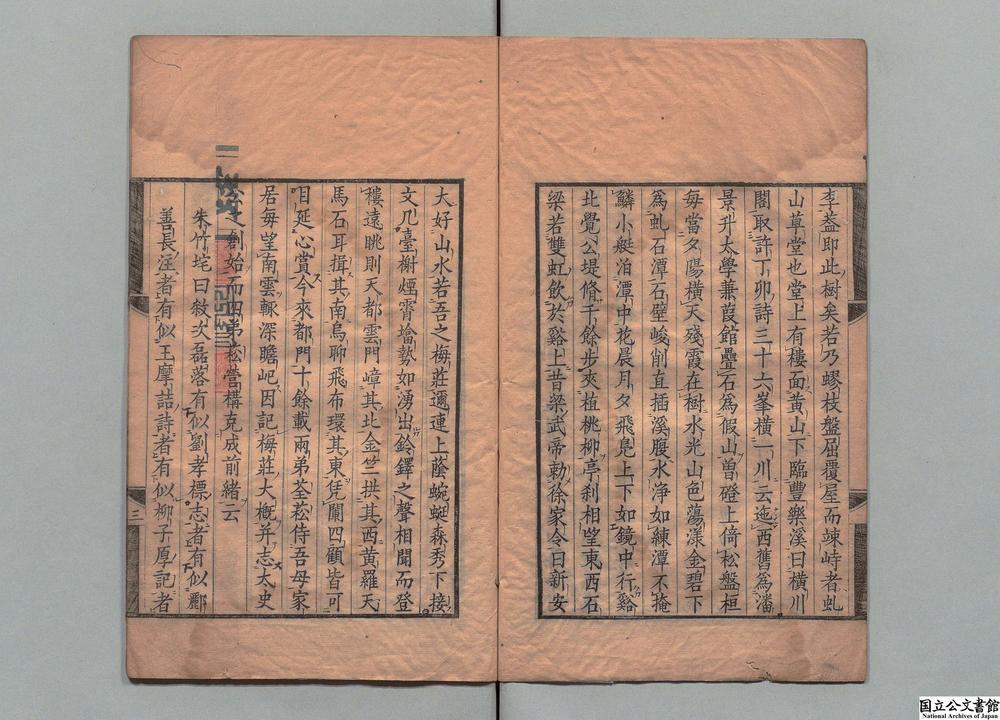 李益即此樹矣若乃蟉枝盤屈覆屋而竦峙者虬
山草堂也堂上有樓面黃山下臨豐樂溪曰橫川
閣取許丁卯詩三十六峯橫一川云迤西舊為潘
景升太學蒹葭館疊石為假山曾磴上倚松盤桓
每當夕陽橫天殘霞在樹水光山色蕩漾金碧下
為虬石潭石壁峻削直插溪腹水净如練潭不掩
鱗小艇泊潭中花晨月夕飛鳧上下如鏡中行谿
北覺公堤脩千餘步夾植桃柳亭刹相望東西石
梁若雙虹飲於谿上昔梁武帝勅徐家令曰新安
大好山水若吾之梅莊邇連上蔭蜿蜒森秀下接
文几臺榭煙霄墖勢如湧出鈴鐸之聲相聞而登
樓遠眺則天都雲門嶂其北金竺拱其西黃羅天
馬石耳揖其南烏聊飛布環其東凭闌四顧皆可
目延心賞今來都門十餘載兩弟荃菘侍吾母家
居每望南雲輙深瞻屺因記梅莊大概并志太史
公之創始而四弟菘營構克成前緒云
朱竹垞曰敘次磊落有似劉孝標志者有似酈
善長注者有似王摩詰詩者有似柳子厚記者
三
国立公文書館
National Archives of Japan